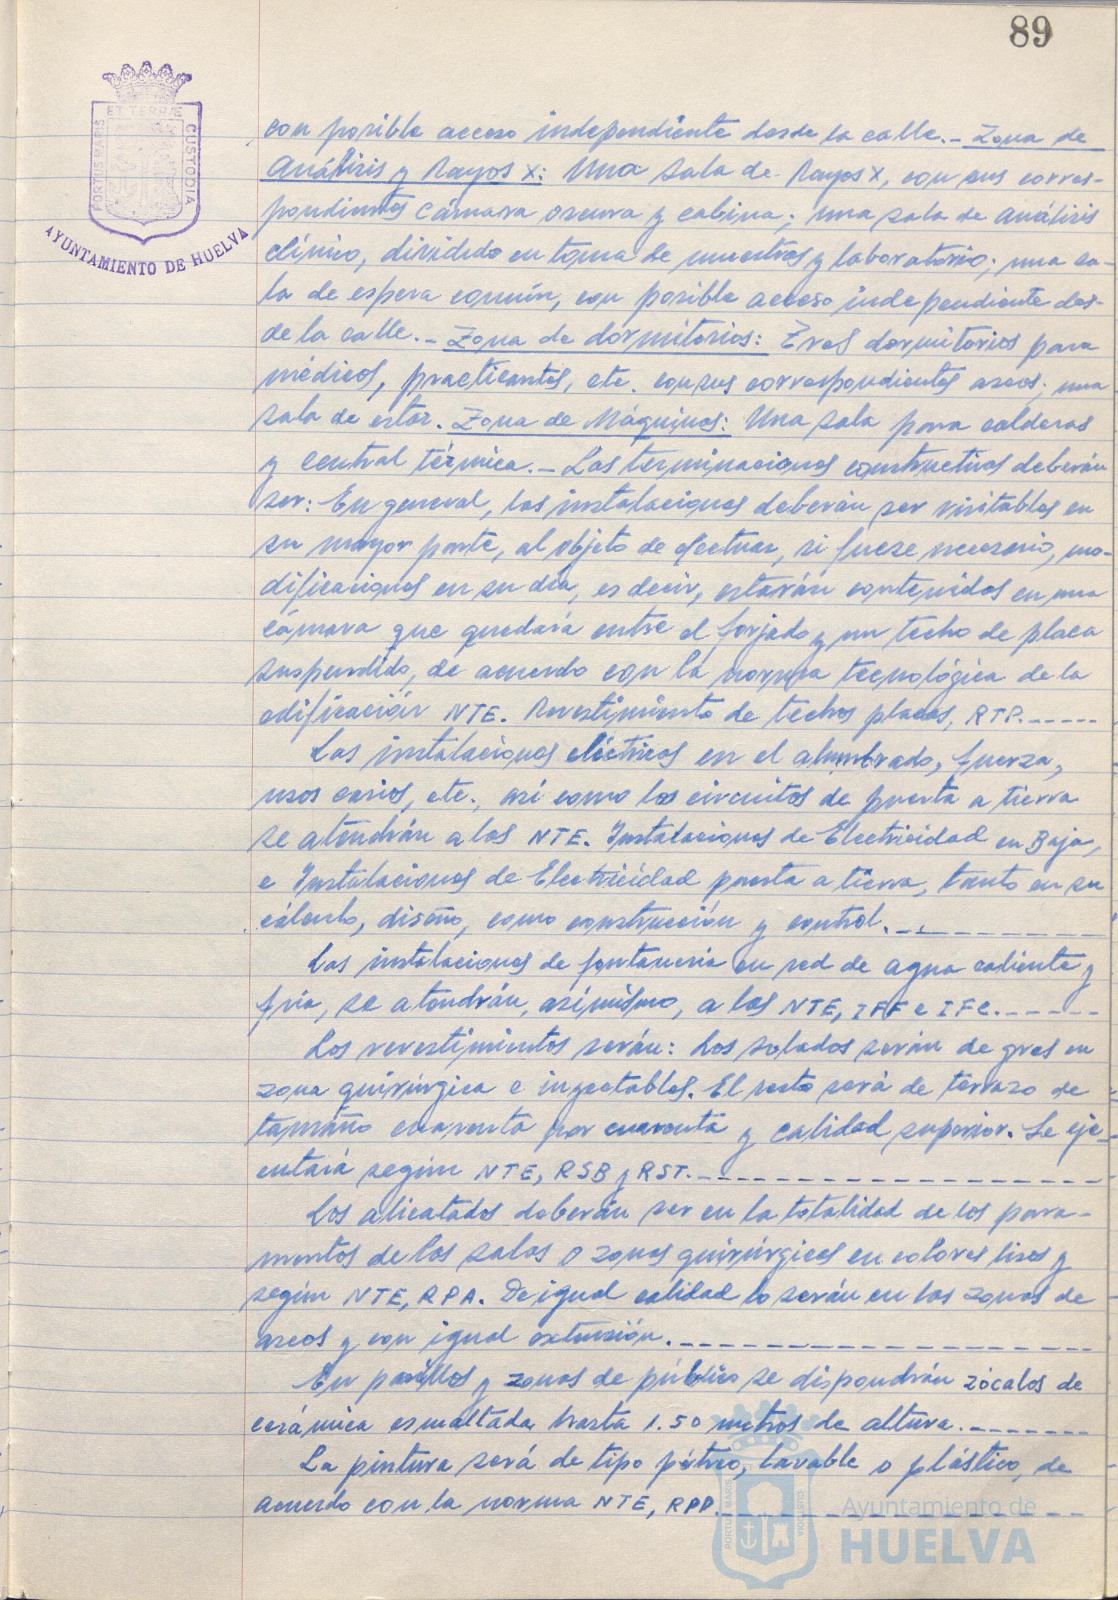 89
PORTUS MARIS
ET TERRÆ
CUSTODIA
AYUNTAMIENTO DE HUELVA
con posible acceso independiente desde la calle.- Zona de
Análisis y Rayos X: Una sala de Rayos X, con sus corres-
pondientes cámara oscura y cabina; una sala de análisis
clínico, dividido en toma de muestras y laboratorio; una sa-
la de espera común, con posible acceso independiente des-
de la calle.- Zona de dormitorios: Tres dormitorios para
médicos, practicantes, etc. con sus correspondientes aseos; una
sala de estar. Zona de Máquinas: Una sala para calderas
y central térmica.- Las terminaciones constructivas deberán
ser: En general, las instalaciones deberán ser visitables en
su mayor parte, al objeto de efectuar, si fuese necesario, mo-
dificaciones en su día, es decir, estarán contenidas en una
cámara que quedará entre el forjado y un techo de placa
suspendido, de acuerdo con la norma tecnológica de la
edificación NTE. Revestimiento de techos placas, RTP.-----
Las instalaciones eléctricas en el alumbrado, fuerza,
usos varios, etc., así como los circuitos de puesta a tierra
se atendrán a las NTE. Instalaciones de Electricidad en Baja,
e Instalaciones de Electricidad puesta a tierra, tanto en su
cálculo, diseño, como construcción y control.----------
Las instalaciones de fontanería en red de agua caliente y
fría, se atendrán, asimismo, a las NTE, IFF e IFC.------
Los revestimientos serán: Los solados serán de gres en
zona quirúrgica e inyectables. El resto será de terrazo de
tamaño cuarenta por cuarenta y calidad superior. Se eje-
cutará según NTE, RSB y RST.--------------------
Los alicatados deberán ser en la totalidad de los para-
mentos de las salas o zonas quirúrgicas en colores lisos y
según NTE, RPA. De igual calidad lo serán en las zonas de
aseos y con igual extensión.--------------------
En pasillos y zonas de público se dispondrán zócalos de
cerámica esmaltada hasta 1.50 metros de altura.-------
La pintura será de tipo pétreo, lavable o plástico, de
acuerdo con la norma NTE, RPP.-----------------
PORTUS MARIS
CUSTODIA
Ayuntamiento de
HUELVA